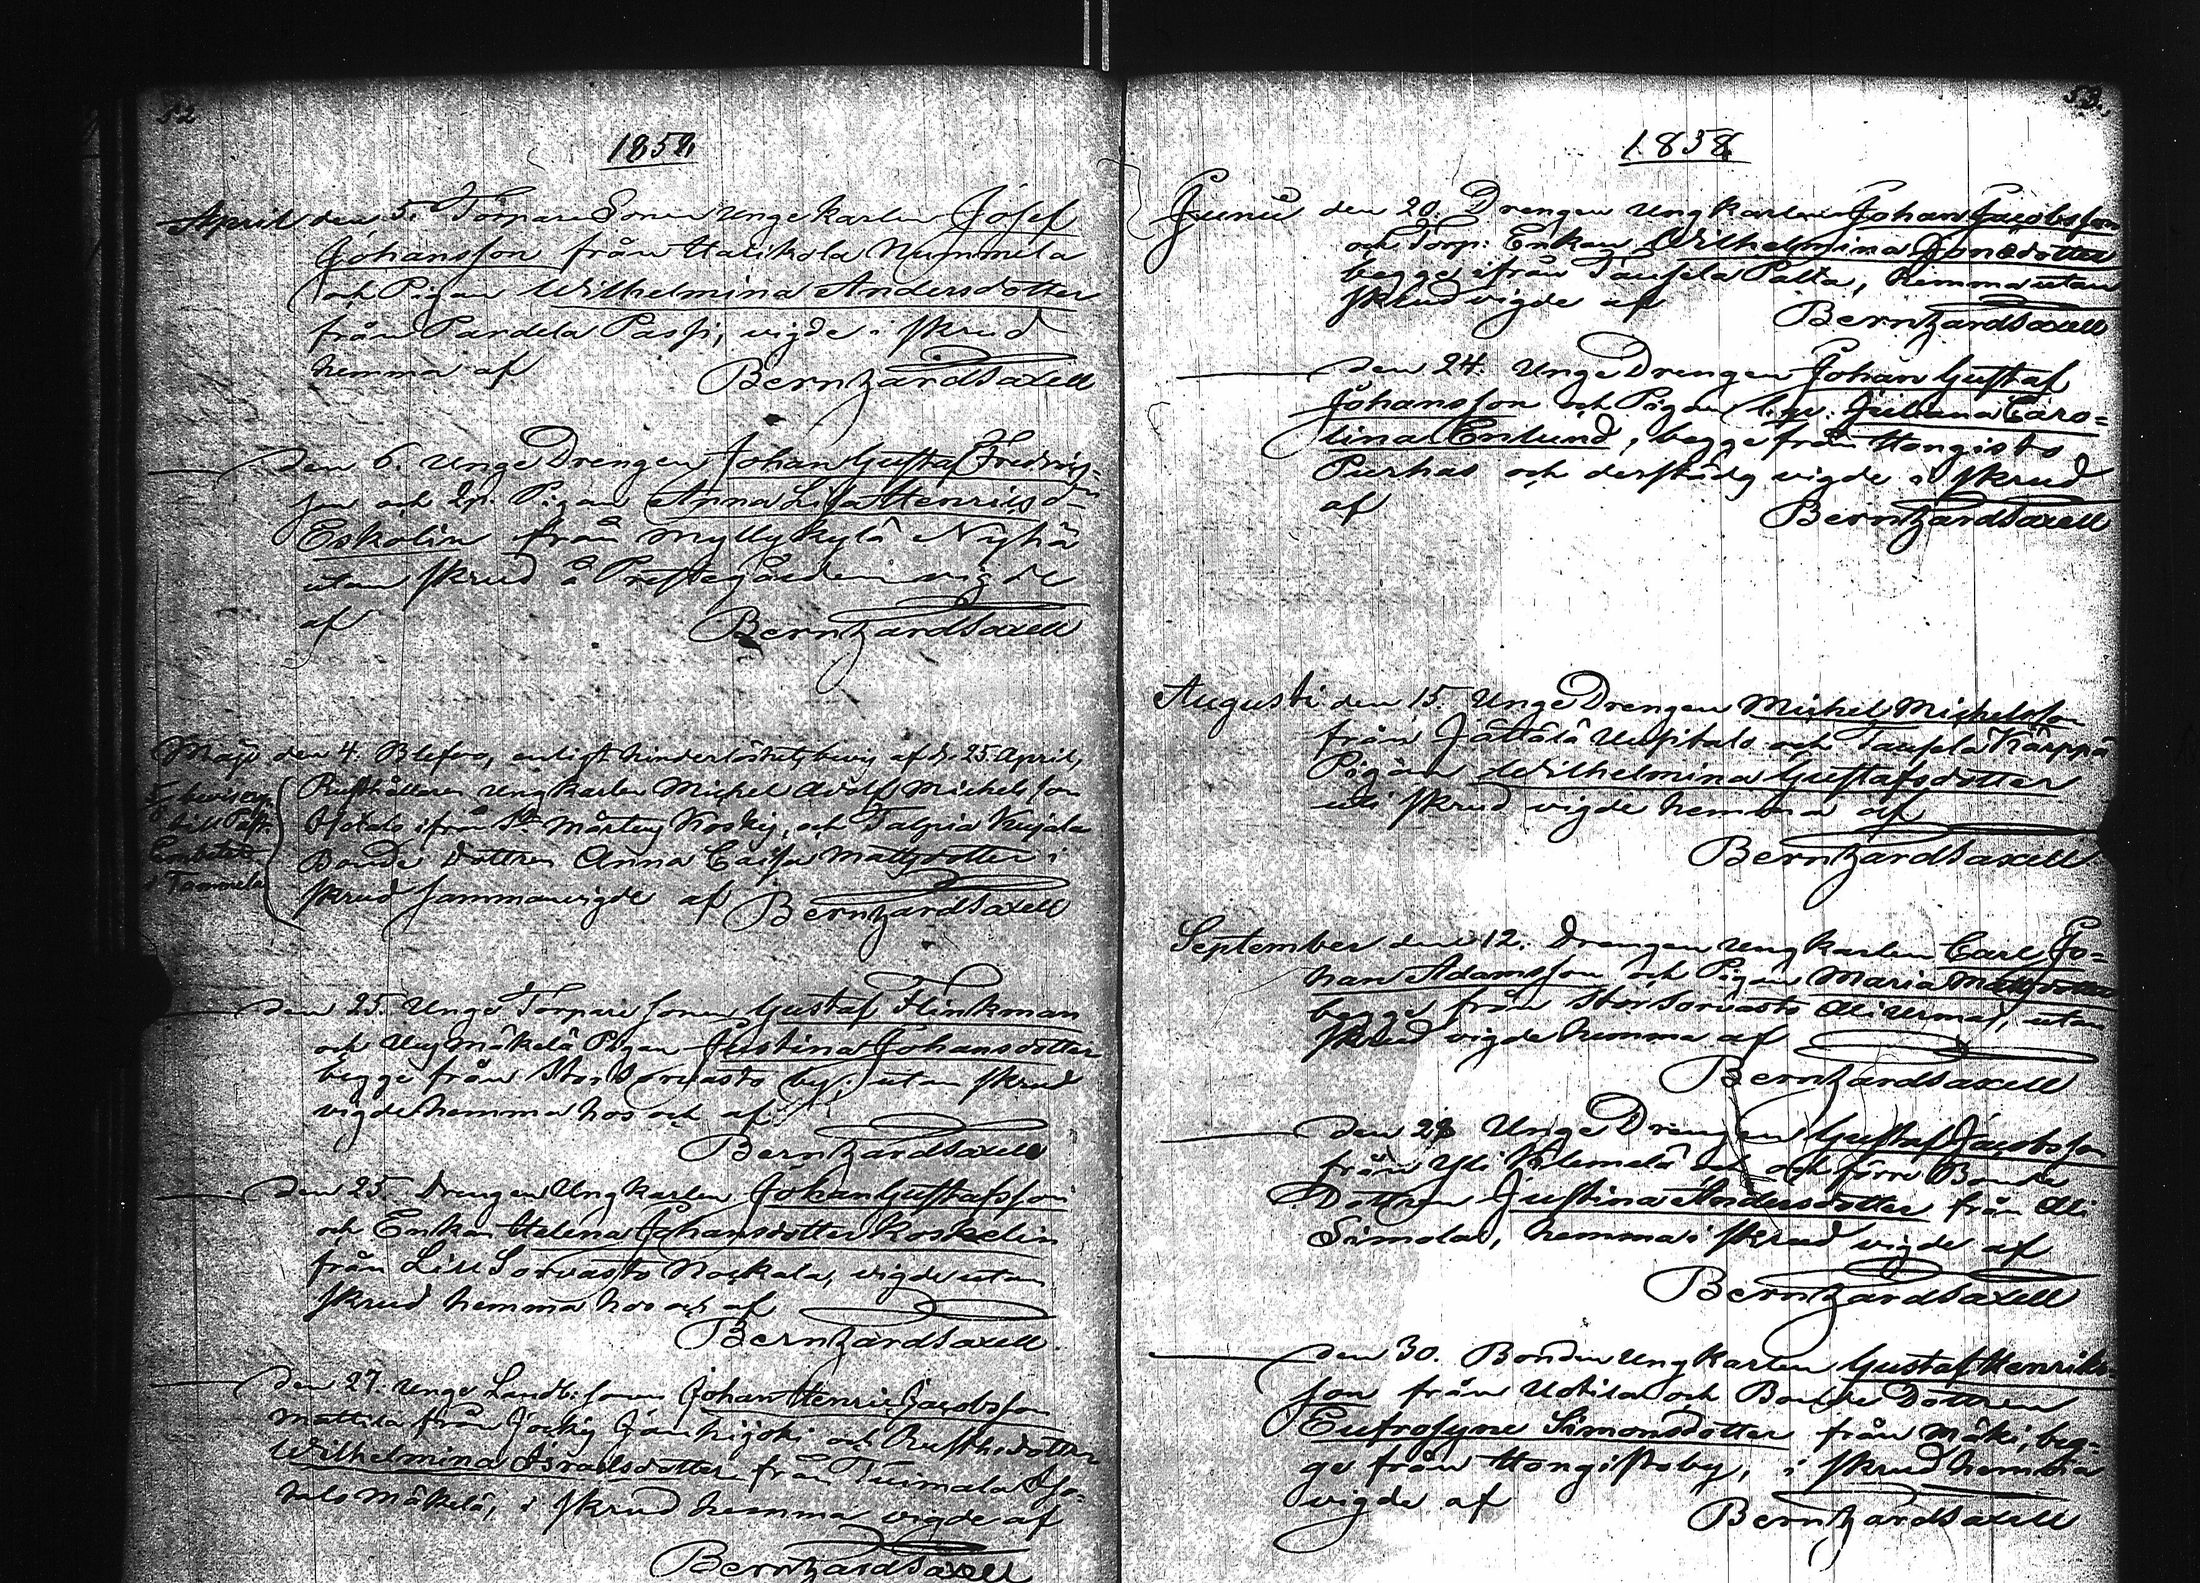 52
1858.
April den 5. Torpare Sonen Unge karlen Josef
Johansson från Halikola Nummela
och Pigan Wilhelmina Andersdotter
från Pardela Passi, vigde i skrud
hemma af
Bernh:ard Saxell
den 6. Unge Drengen Johan Gustaf Fredrics-
son och Pigan Anna Lisa Henricsd:
Eskolin från Myllykylä Nighä
utan skrud å Prestegården vigde
af
Bernh:ard Saxell
Maji den 4. Blefvo, enligt hinderlöshets bevis af d. 25 April,
Rusthållaren Ungkarlen Michel Adolf Michelsson
Hotals ifrån St Mårtens Koskis, och Talpia Kujala
Bonde dottren Anna Caisa Mattsdotter i
skrud sammanvigde af Bernh:ard Saxell
bevis
till Past:
Embetet
i Tammela
den 25. Unge Torpare sonen Gustaf Flinkman
och Mäkelä Pigan Justina Johansdotter
begge från Stor Sorvasto by; utan skrud
vigde hemma hos och af
Bernh:ard Saxell
den 25. Drengen Ungkarlen Johan Gustafsson
och Enkan Helena Johansdotter Koskelin
från Lill Sorvasto Nockala, vigde utan
skrud hemma hos och af
Bernh:ard Saxell
den 27. Unge Landb: sonen Johan Henric Jacobsson
Mattila från Jockis Jänhijoki och Rusth:dotter
Wilhelmina Israelsdotter från Tuimala Iso-
talo Mäkelä, i skrud hemma vigde af
Bernh:ard Saxell
53.
1858.
Junii den 20. Drengen Ungkarlen Johan Jacobsson
och Torp: Enkan Wilhelmina Jonedotter
begge ifrån Taussela Palta, hemma utan
skrud vigde af
Bernh:ard Saxell
den 24. Unge Drengen Johan Gustaf
Johansson och Pigan Juliana Caro-
lina Enlund, begge från Hongisto
Purhas och derstädes vigde i skrud
af
Bernh:ard Saxell
Augusti den 15. Unge Drengen Michel Michelsson
från Jättälä Uusitalo och Taussela Kärppä
Pigan Wilhelmina Gustafsdotter
uti skrud vigde hemma af
Bernh:ard Saxell
September den 12. Drengen Ungkarlen Carl Jo-
han Adamsson och Pigan Maria Mattsdotter
begge från Stor Sorvasto Alivirma, utan
skrud vigde hemma af
Bernh:ard Saxell
den 28 Unge Drengen Gustaf Jacobsson
från Yli Kilemelä och förre Bonde
Dottren Justina Andersdotter från Ali
Simola, hemma i skrud vigde af
Bernh:ard Saxell
den 30. Bonden Ungkarlen Gustaf Henriks-
son från Uotila och Bonde Dottren
Eufrosyne Simonsdotter från Mäki, beg-
ge från Hongisto by, i skrud hemma
vigde af
Bernh:ard Saxell